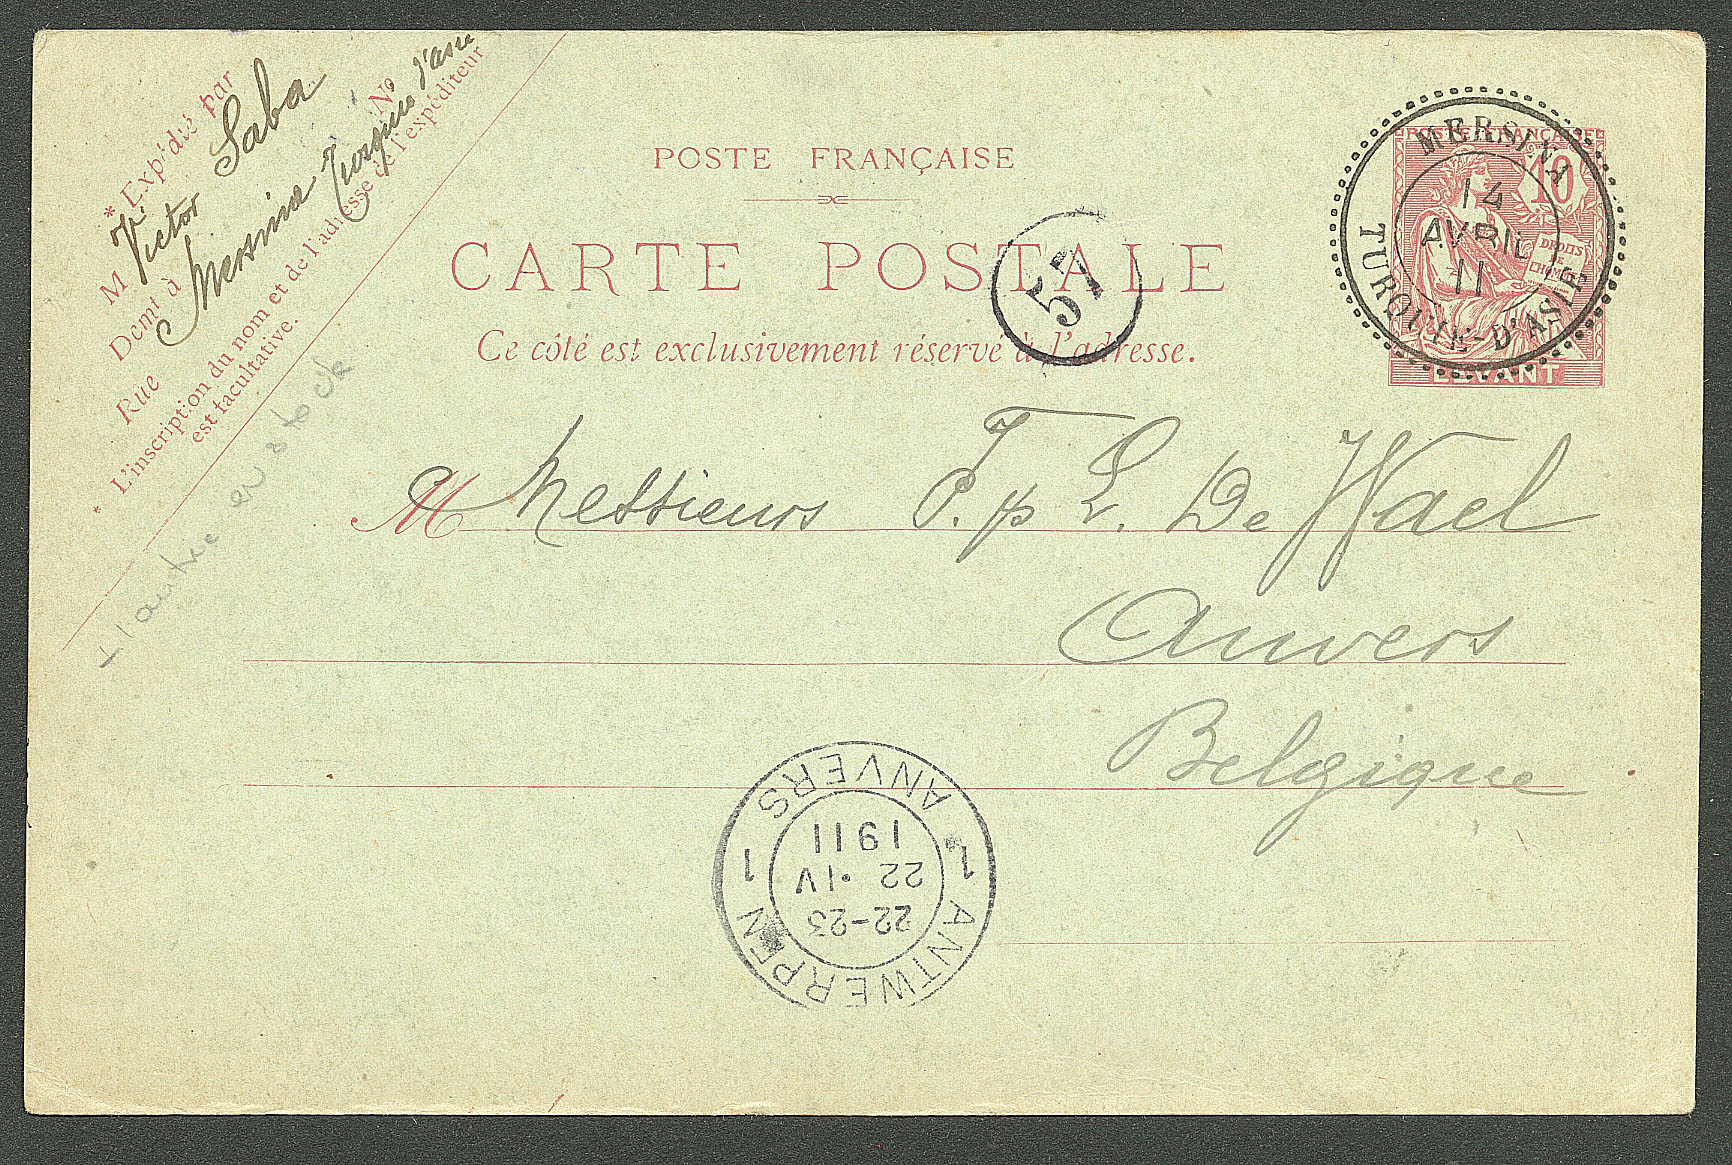 * Expédié par
M Victor Saba
Demt à Mersina Turquie d'asie
Rue Nº
* L'inscription du nom et de l'adresse de l'expéditeur
est facultative.
POSTE FRANÇAISE
CARTE POSTALE
Ce côté est exclusivement réservé à l'adresse.
57
POSTE FRANÇAISE
10
DROITS
DE
L'HOMME
LEVANT
MERSINA
14
AVRIL
11
TURQUIE-D'ASIE
M Messieurs F. & L. De Wael
Anvers
Belgique
1 ANTWERPEN 1
22-23
22 · IV
1911
ANVERS
l'autre en stock